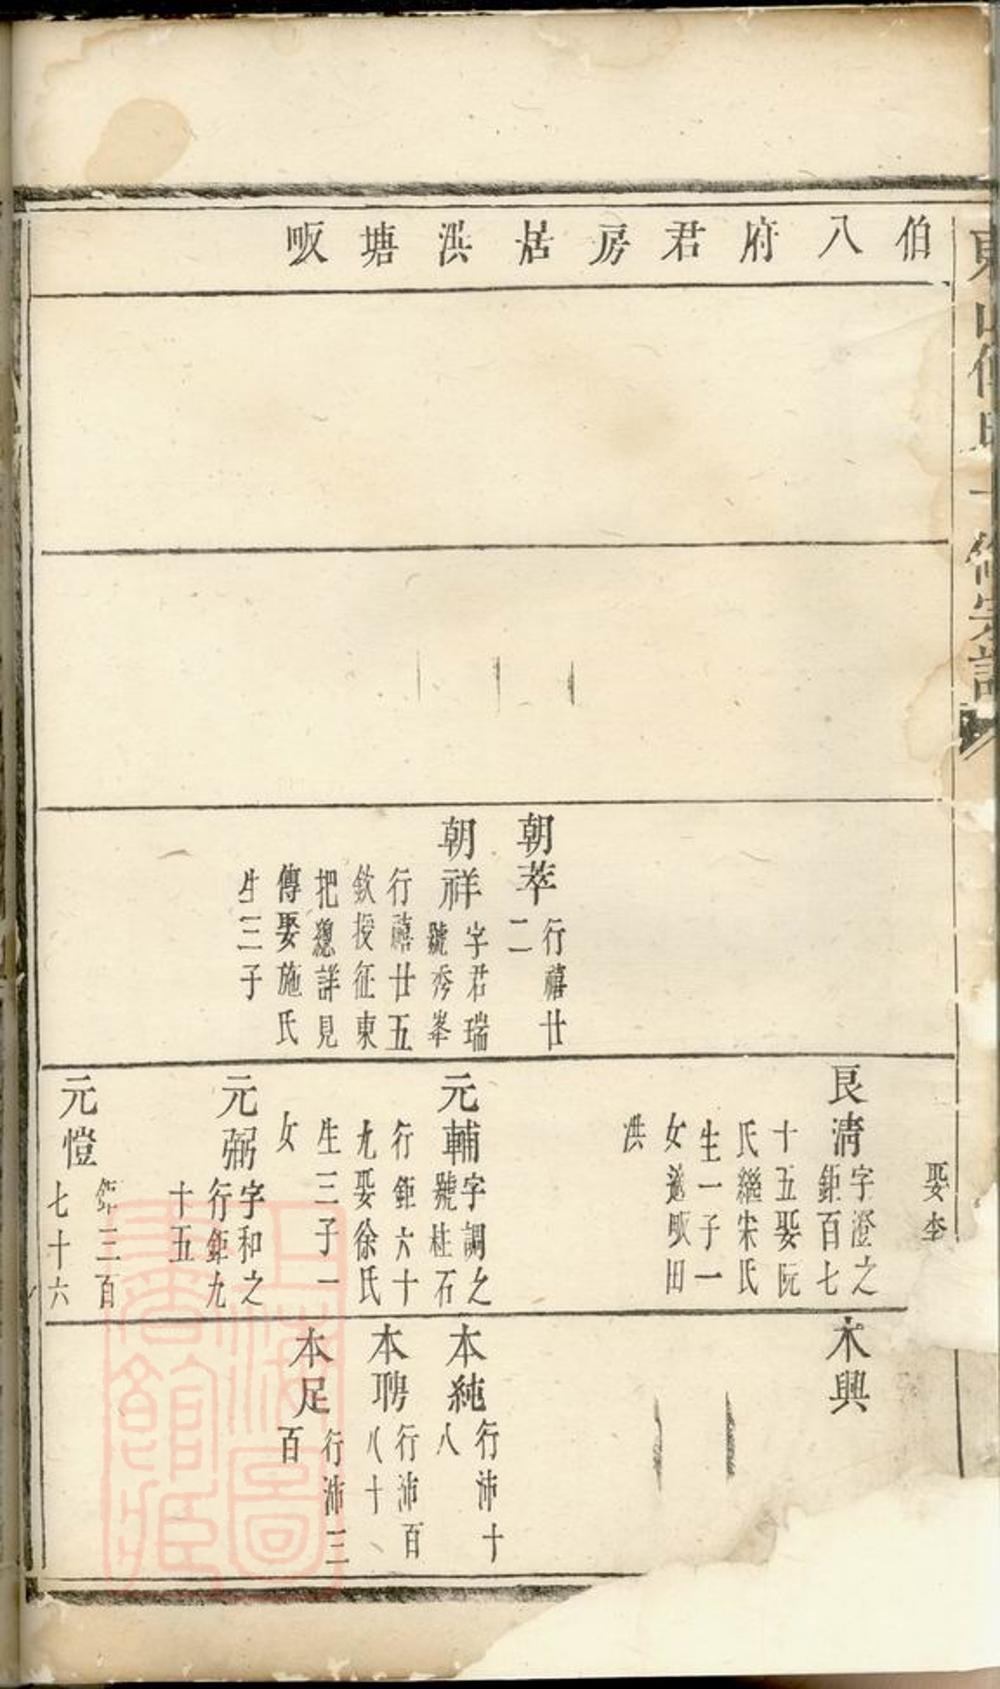 伯八府君房居洪塘畈
朝萃
行禧廿
二
朝祥
字君瑞
號秀峯
行禧廿五
欽授征東
把總詳見
傳娶施氏
生三子
娶李
良清
字澄之
鉅百七
十五娶阮
氏繼宋氏
生一子一
女適畈田
洪
元輔
字調之
號柱石
行鉅六十
九娶徐氏
生三子一
女
元弼
字和之
行鉅九
十五
元愷
鉅三百
七十六
永興
本純
行沛十
八
本聘
行沛百
八十
本足
行沛三
百
上海圖
書館藏